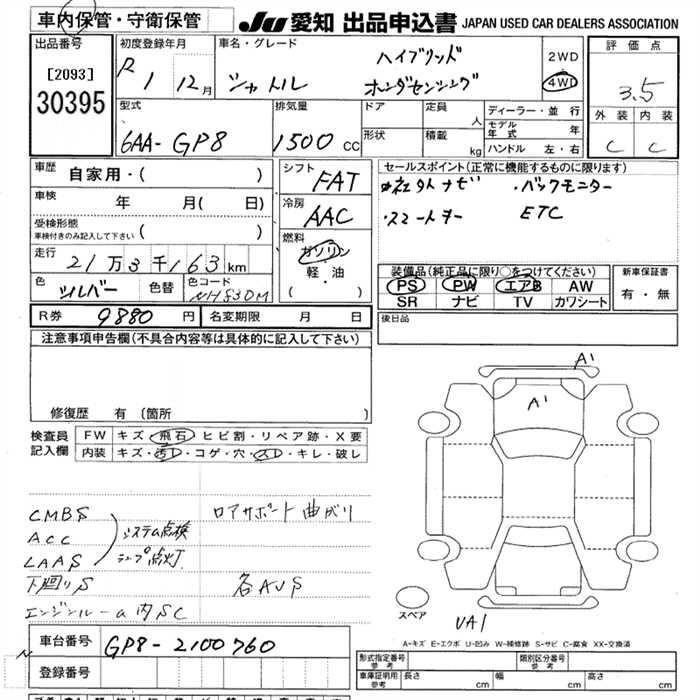 車内保管・守衛保管
JU 愛知 出品申込書 JAPAN USED CAR DEALERS ASSOCIATION
出品番号
[2093]
30395
初度登録年月
R 1 12月
車名・グレード
ハイブリッド
シャトル ホンダセンシング
2WD
4WD
評価点
3.5
外装 内装
C C
型式
6AA-GP8
排気量
1500 cc
ドア
形状
定員 人
積載 kg
ディーラー・並行
モデル年式 年
ハンドル 左・右
車歴 自家用・( )
車検 年 月( 日)
受検形態
車検付きのみ記入して下さい ( )
走行 21万3千163km
色 シルバー 色替 色コード NH830M
シフト FAT
冷房 AAC
燃料
ガソリン
軽・油
( )
セールスポイント(正常に機能するものに限ります)
・社外ナビ ・バックモニター
・スマートキー ETC
装備品(純正品に限り○をつけてください)
PS PW エアB AW
SR ナビ TV カワシート
新車保証書
有・無
R券 9880円 名変期限 月 日
後日品
注意事項申告欄(不具合内容等は具体的に記入して下さい)
修復歴 有 (箇所 )
検査員記入欄
FW キズ・飛石・ヒビ割・リペア跡・X要
内装 キズ・汚レ・コゲ・穴・スレ・キレ・破レ
CMBS
ACC
LAAS
システム点検
ランプ点灯
下廻りS
エンジンルーム内SC
ロアサポート曲がり
各AUS
A1
A1
スペア
UA1
A-キズ E-エクボ U-凹み W-補修跡 S-サビ C-腐食 XX-交換済
車台番号 GP8-2100760
登録番号
形式指定番号 参考
類別区分番号 参考
車庫証明用 参考 長さ cm 幅 cm 高さ cm